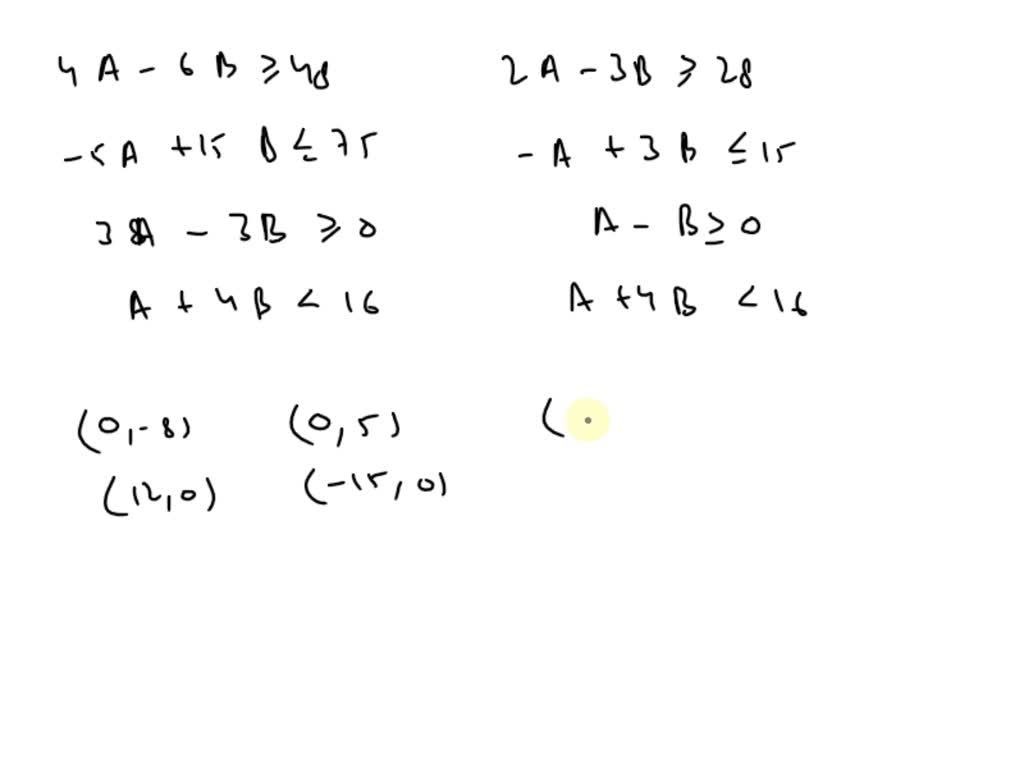 4A - 6B ≥ 48
2A - 3B ≥ 28
-5A + 15B ≤ 75
-A + 3B ≤ 15
3A - 3B ≥ 0
A - B ≥ 0
A + 4B < 16
A + 4B < 16
(0, -8) (0, 5) (
(12, 0) (-15, 0)